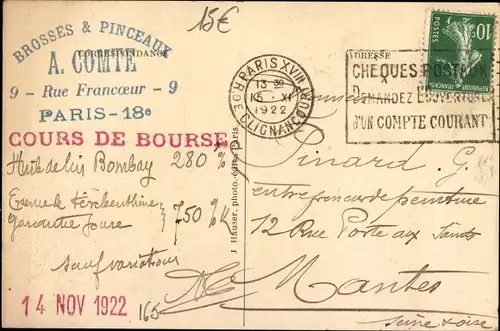 15€
BROSSES & PINCEAUX
CORRESPONDANCE
A. COMTE
9 - Rue Francœur - 9
PARIS-18e
COURS DE BOURSE
Huile de lin Bombay 280 %
Essence de térébenthine
Garantie Pure } 750 % K
sauf variations
14 NOV 1922
165
J. Hauser, photo. édit. Paris.
PARIS XVIII
R. DE CLIGNANCOURT
13
15 - XI
1922
ADRESSE
CHEQUES POSTAUX
DEMANDEZ L'OUVERTURE
D'UN COMPTE COURANT
POSTES
10c
Monsieur
Pinard G.
entrepreneur de peinture
12 Rue Porte aux Saints
Mantes
Seine & Oise